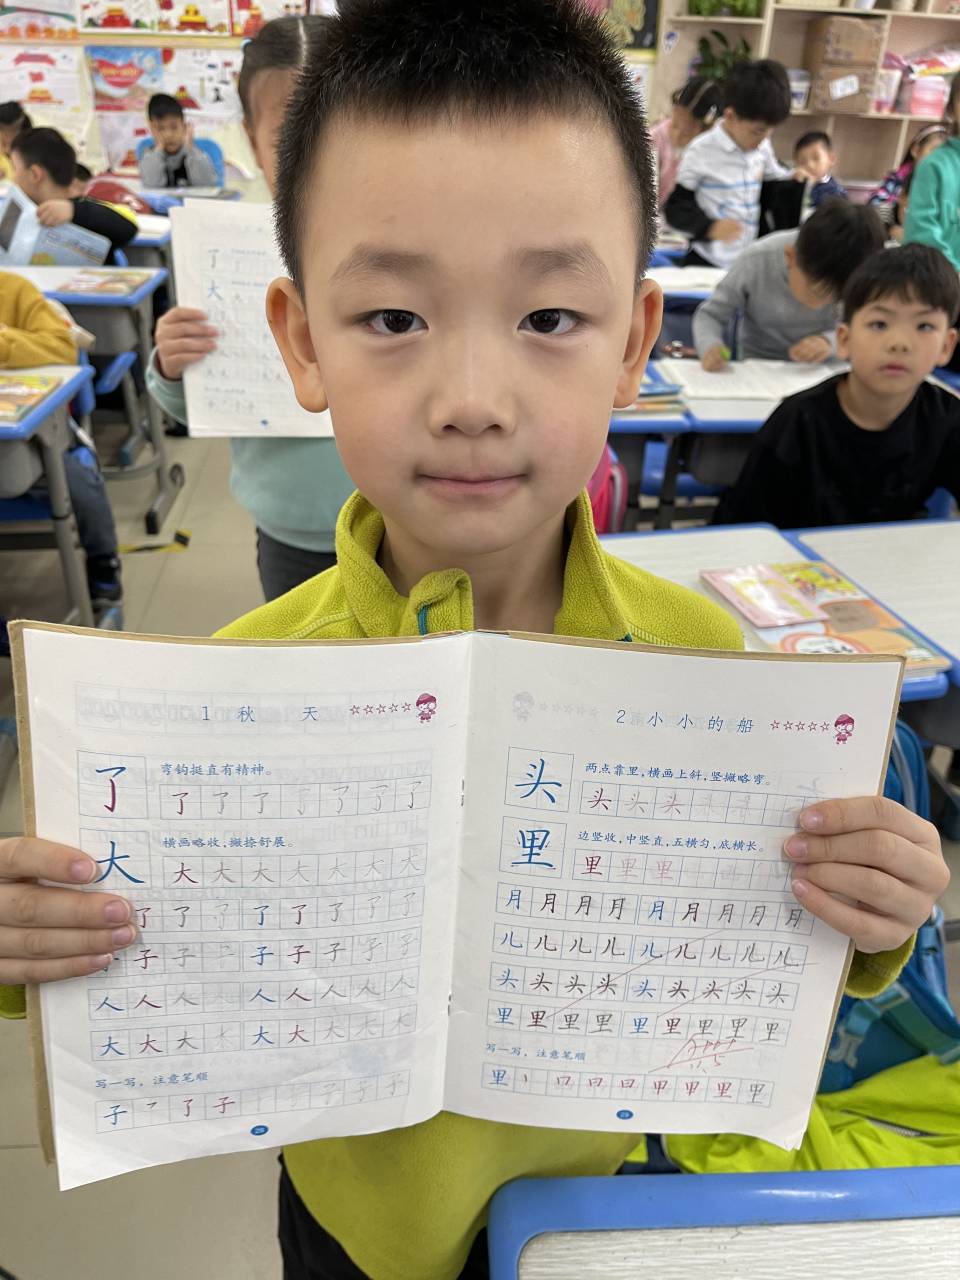 1 秋 天
了
弯钩挺直有精神。
了了了了了了了
大
横画略收，撇捺舒展。
大大大大大大大
了了了了了了了了
子子子子子子子子
人人人人人人人人
大大大大大大大大大
写一写，注意笔顺
子了了子子子子
28
2 小小的船
头
两点靠里，横画上斜，竖撇略弯。
头头头头头
里
边竖收，中竖直，五横匀，底横长。
里里里里
月月月月月月月月月
儿儿儿儿儿儿儿儿儿
头头头头头头头头头
里里里里里里里里里
写一写，注意笔顺
里丨口日日甲里里里
29
了
大